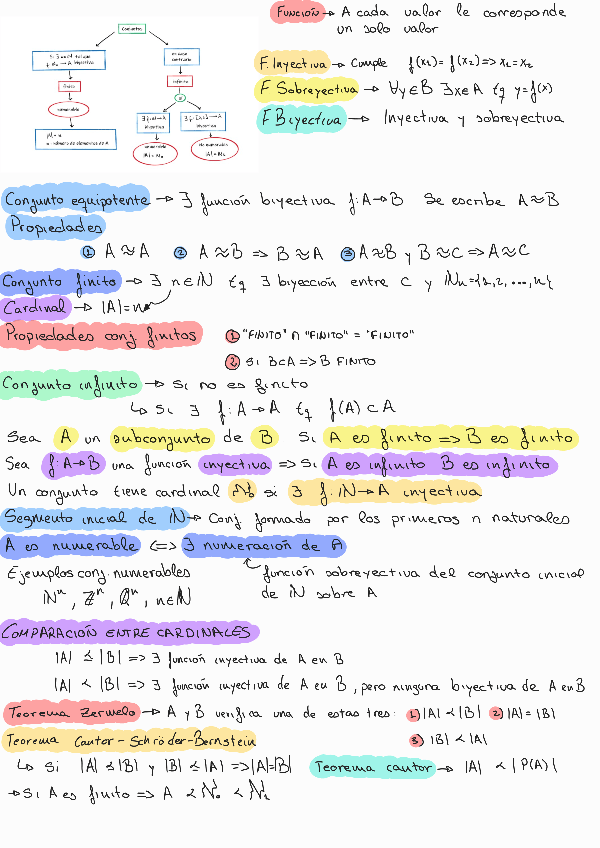 Conjuntos
Si ∃ n∈ℕ tal que
En caso contrario
finito
infinito
numerable
|A| = n
n: número de elementos de A
biyectiva
biyectiva
numerable
|A| = ℵ₀
no numerable
Función → A cada valor le corresponde
un solo valor
F. Inyectiva → Cumple f(x₁) = f(x₂) => x₁ = x₂
F Sobreyectiva → ∀y∈B ∃x∈A tq y=f(x)
F Biyectiva → Inyectiva y sobreyectiva
Conjunto equipotente → ∃ función biyectiva f: A→B Se escribe A≈B
Propiedades
① A≈A ② A≈B => B≈A ③ A≈B y B≈C => A≈C
Conjunto finito → ∃ n∈ℕ tq ∃ biyección entre C y ℕₙ={1,2,...,n}
Cardinal → |A|=n
Propiedades conj. finitos ① "FINITO" ∩ "FINITO" = "FINITO"
② SI B⊂A => B FINITO
Conjunto infinito → Si no es finito
↳ Si ∃ f: A→A tq f(A)⊂A
Sea A un subconjunto de B Si A es finito => B es finito
Sea f: A→B una función inyectiva => Si A es infinito B es infinito
Un conjunto tiene cardinal ℵ₀ si ∃ f: ℕ→A inyectiva
Segmento inicial de ℕ → Conj formado por los primeros n naturales
A es numerable <=> ∃ numeración de A
Ejemplos conj. numerables
función sobreyectiva del conjunto inicial
de ℕ sobre A
ℕⁿ, ℤⁿ, ℚⁿ, n∈ℕ
COMPARACIÓN ENTRE CARDINALES
|A| ≤ |B| => ∃ función inyectiva de A en B
|A| < |B| => ∃ función inyectiva de A en B, pero ninguna biyectiva de A en B
Teorema Zermelo → A y B verifica una de estas tres: ① |A| < |B| ② |A| = |B|
③ |B| < |A|
Teorema Cantor-Schröder-Bernstein
↳ Si |A| ≤ |B| y |B| ≤ |A| => |A|=|B|
Teorema cantor → |A| < |P(A)|
→ Si A es finito => A < ℵ₀ < ℵ₁